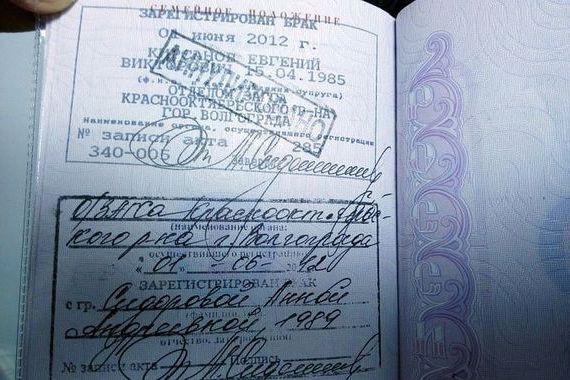 СЕМЕЙНОЕ ПОЛОЖЕНИЕ
ЗАРЕГИСТРИРОВАН БРАК
июня 2012 г.
ЕВГЕНИЙ
15.04.1985
ОТДЕЛОМ ЗАГСА
КРАСНООКТЯБРЬСКОГО Р-НА
ГОР. ВОЛГОГРАДА
Наименование органа, осуществившего регистрацию
№ записи акта 285
340-006
ОЗАГСа Краснооктябрьс-
(наименование органа,
кого р-на г. Волгограда
осуществившего регистрацию)
"01" 06 2012
ЗАРЕГИСТРИРОВАН БРАК
с гр. Сидоровой Анной
Андреевной, 1989
отчество, дата рождения)
№ записи акта
Подпись